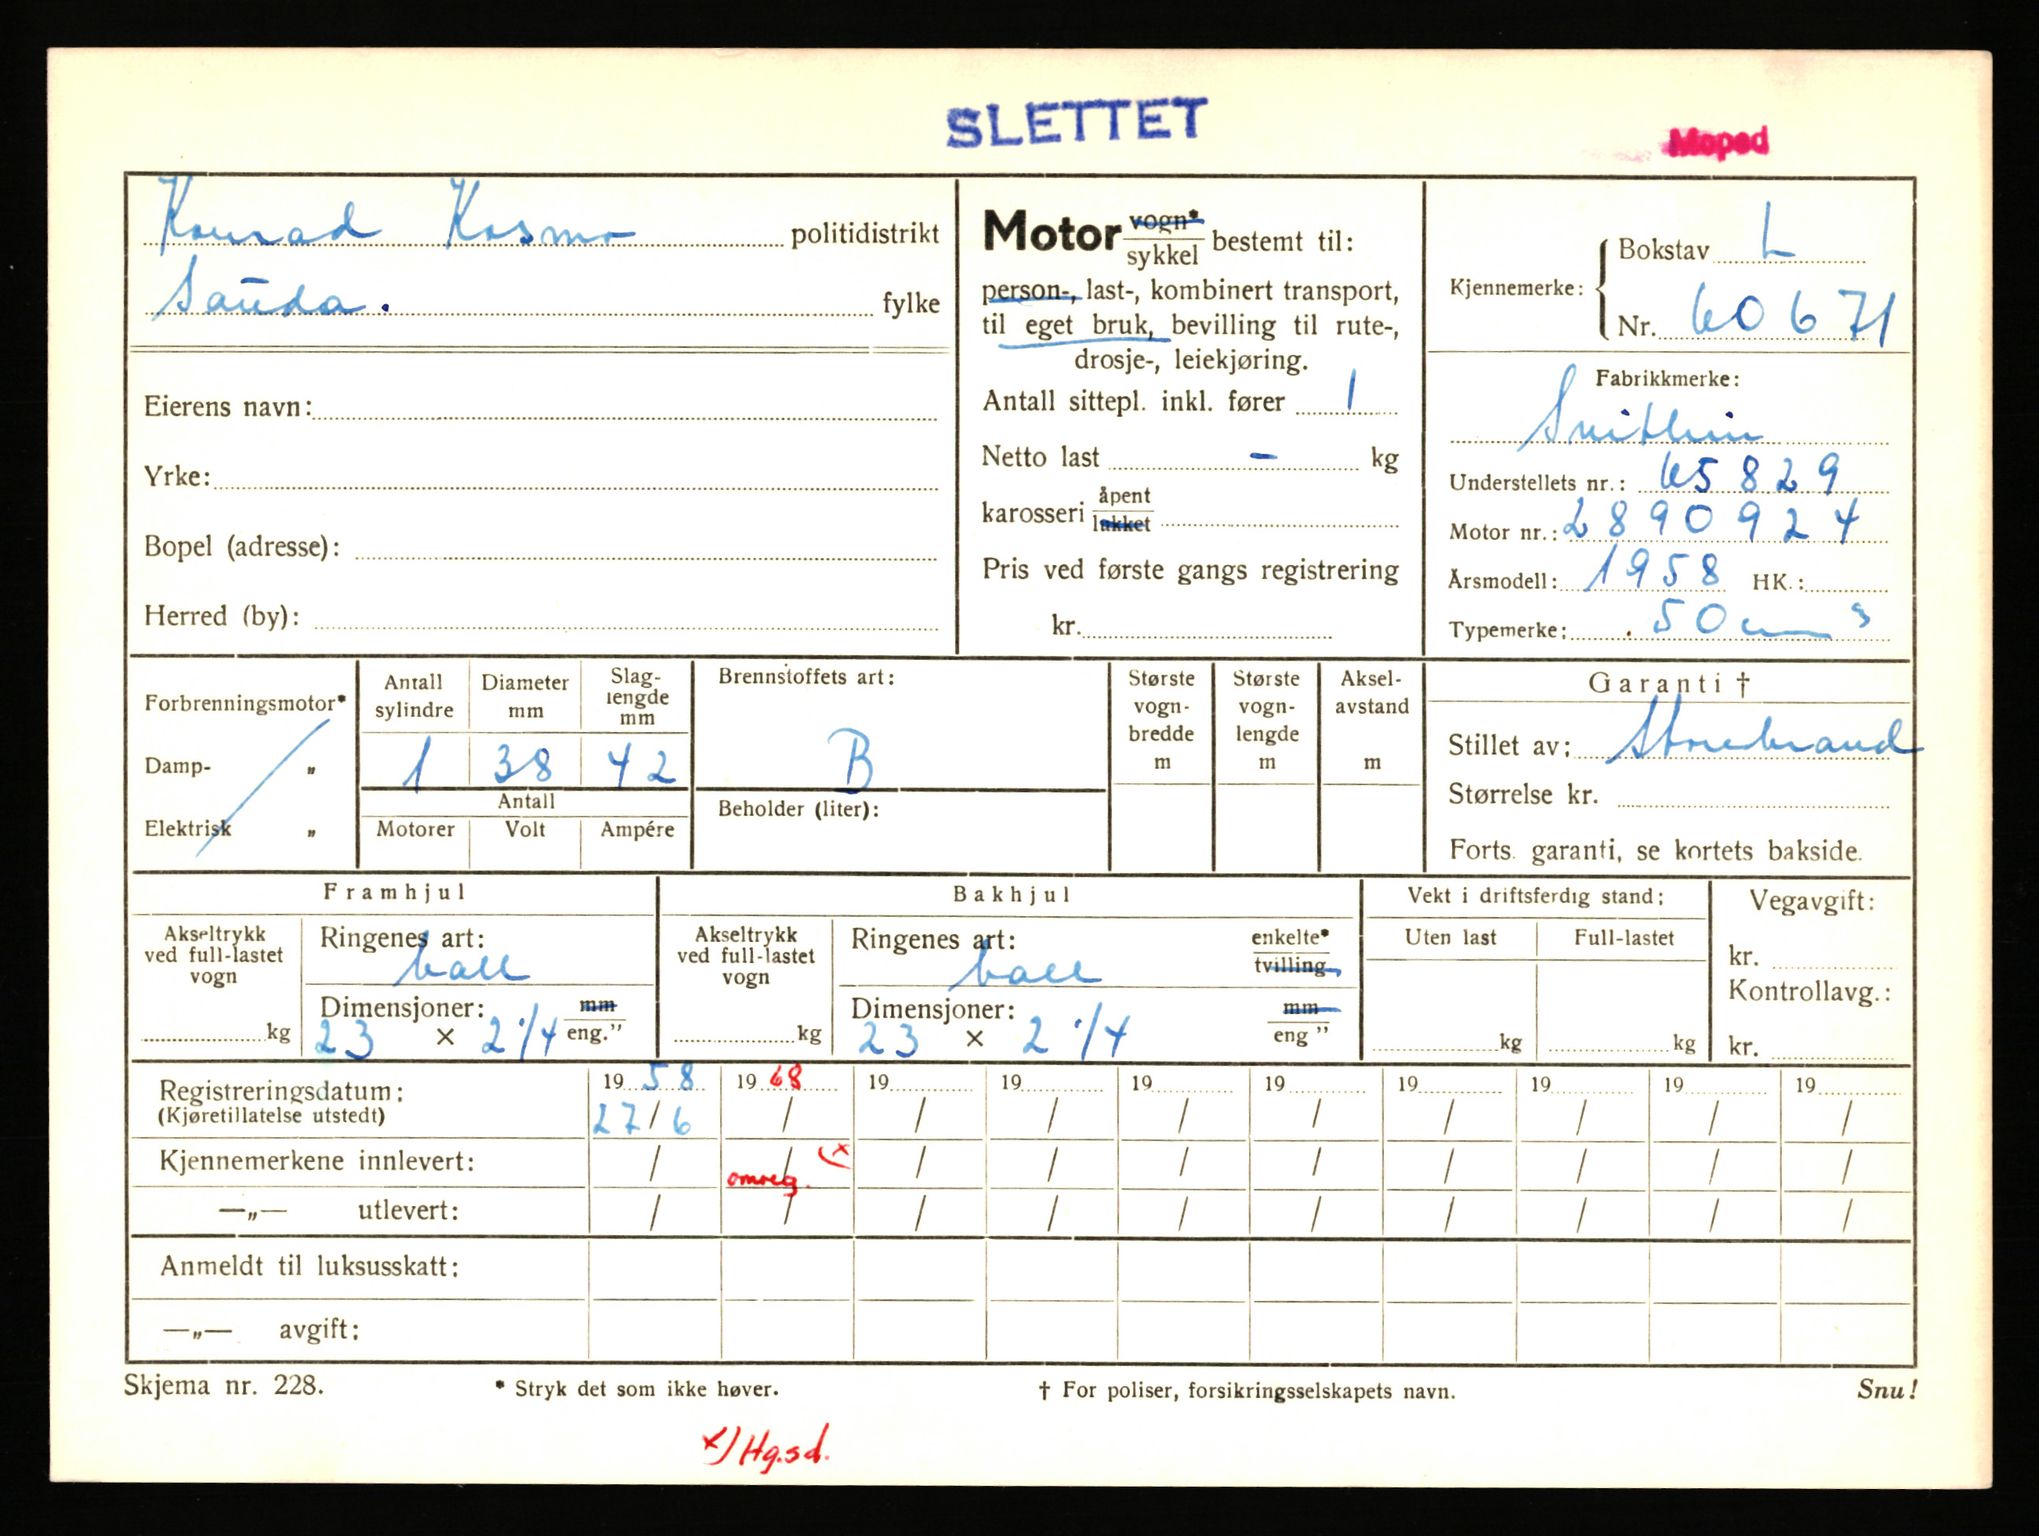 SLETTET
Moped
Konrad Kosmo politidistrikt
Sauda. fylke
Eierens navn:
Yrke:
Bopel (adresse):
Herred (by):
Motor vogn* / sykkel bestemt til:
person-, last-, kombinert transport,
til eget bruk, bevilling til rute-,
drosje-, leiekjøring.
Antall sittepl. inkl. fører 1
Netto last - kg
karosseri åpent / lukket
Pris ved første gangs registrering
kr.
Kjennemerke: Bokstav L
Nr. 60671
Fabrikkmerke:
Understellets nr.: 65829
Motor nr.: 2890924
Årsmodell: 1958 HK.:
Typemerke: 50 cm³
Forbrenningsmotor*
Damp- „
Elektrisk „
Antall sylindre
Diameter mm
Slaglengde mm
1 38 42
Antall
Motorer Volt Ampére
Brennstoffets art:
B
Beholder (liter):
Største vogn- bredde m
Største vogn- lengde m
Aksel- avstand m
Garanti †
Stillet av: Storebrand
Størrelse kr.
Forts. garanti, se kortets bakside.
Framhjul
Akseltrykk ved full-lastet vogn
kg
Ringenes art:
ball
Dimensjoner: mm / eng."
23 × 2 1/4
Bakhjul
Akseltrykk ved full-lastet vogn
kg
Ringenes art: enkelte* / tvilling
ball
Dimensjoner: mm / eng "
23 × 2 1/4
Vekt i driftsferdig stand:
Uten last Full-lastet
kg kg
Vegavgift:
kr.
Kontrollavg.:
kr.
Registreringsdatum: 19 58 19 68 19 19 19 19 19 19 19 19
(Kjøretillatelse utstedt) 27/6 / / / / / / / / /
Kjennemerkene innlevert: / omreg. / (x / / / / / / / /
—„— utlevert: / / / / / / / / / /
Anmeldt til luksusskatt:
—„— avgift:
Skjema nr. 228. * Stryk det som ikke høver. † For poliser, forsikringsselskapets navn. Snu!
x) Hg.sd.